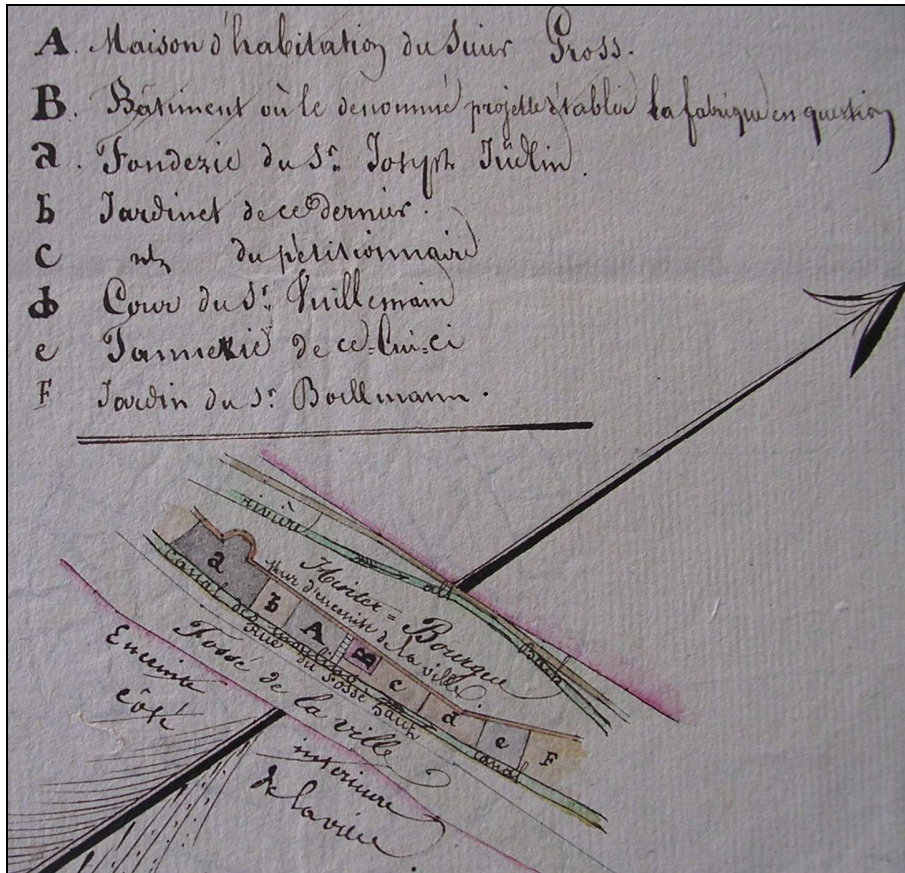 A. Maison d'habitation du Sieur Gross.
B. Bâtiment où le dénommé projette établir la fabrique en question
a. Fonderie du Sr. Joseph Jüdlin.
b Jardinet de ce dernier.
c du pétitionnaire
d Cour du Sr. Vuillemain
e Tannerie de ce-lui-ci
F Jardin du Sr. Boillmann.
rivière
all
Bach
Hinter = Bourgue
Mur d'enceinte de la ville
a
b
A
B
c
d
e
F
Canal des
canal
Rue du Fossé haut
Fossé de la ville
Enceinte
côté
intérieure
de la ville